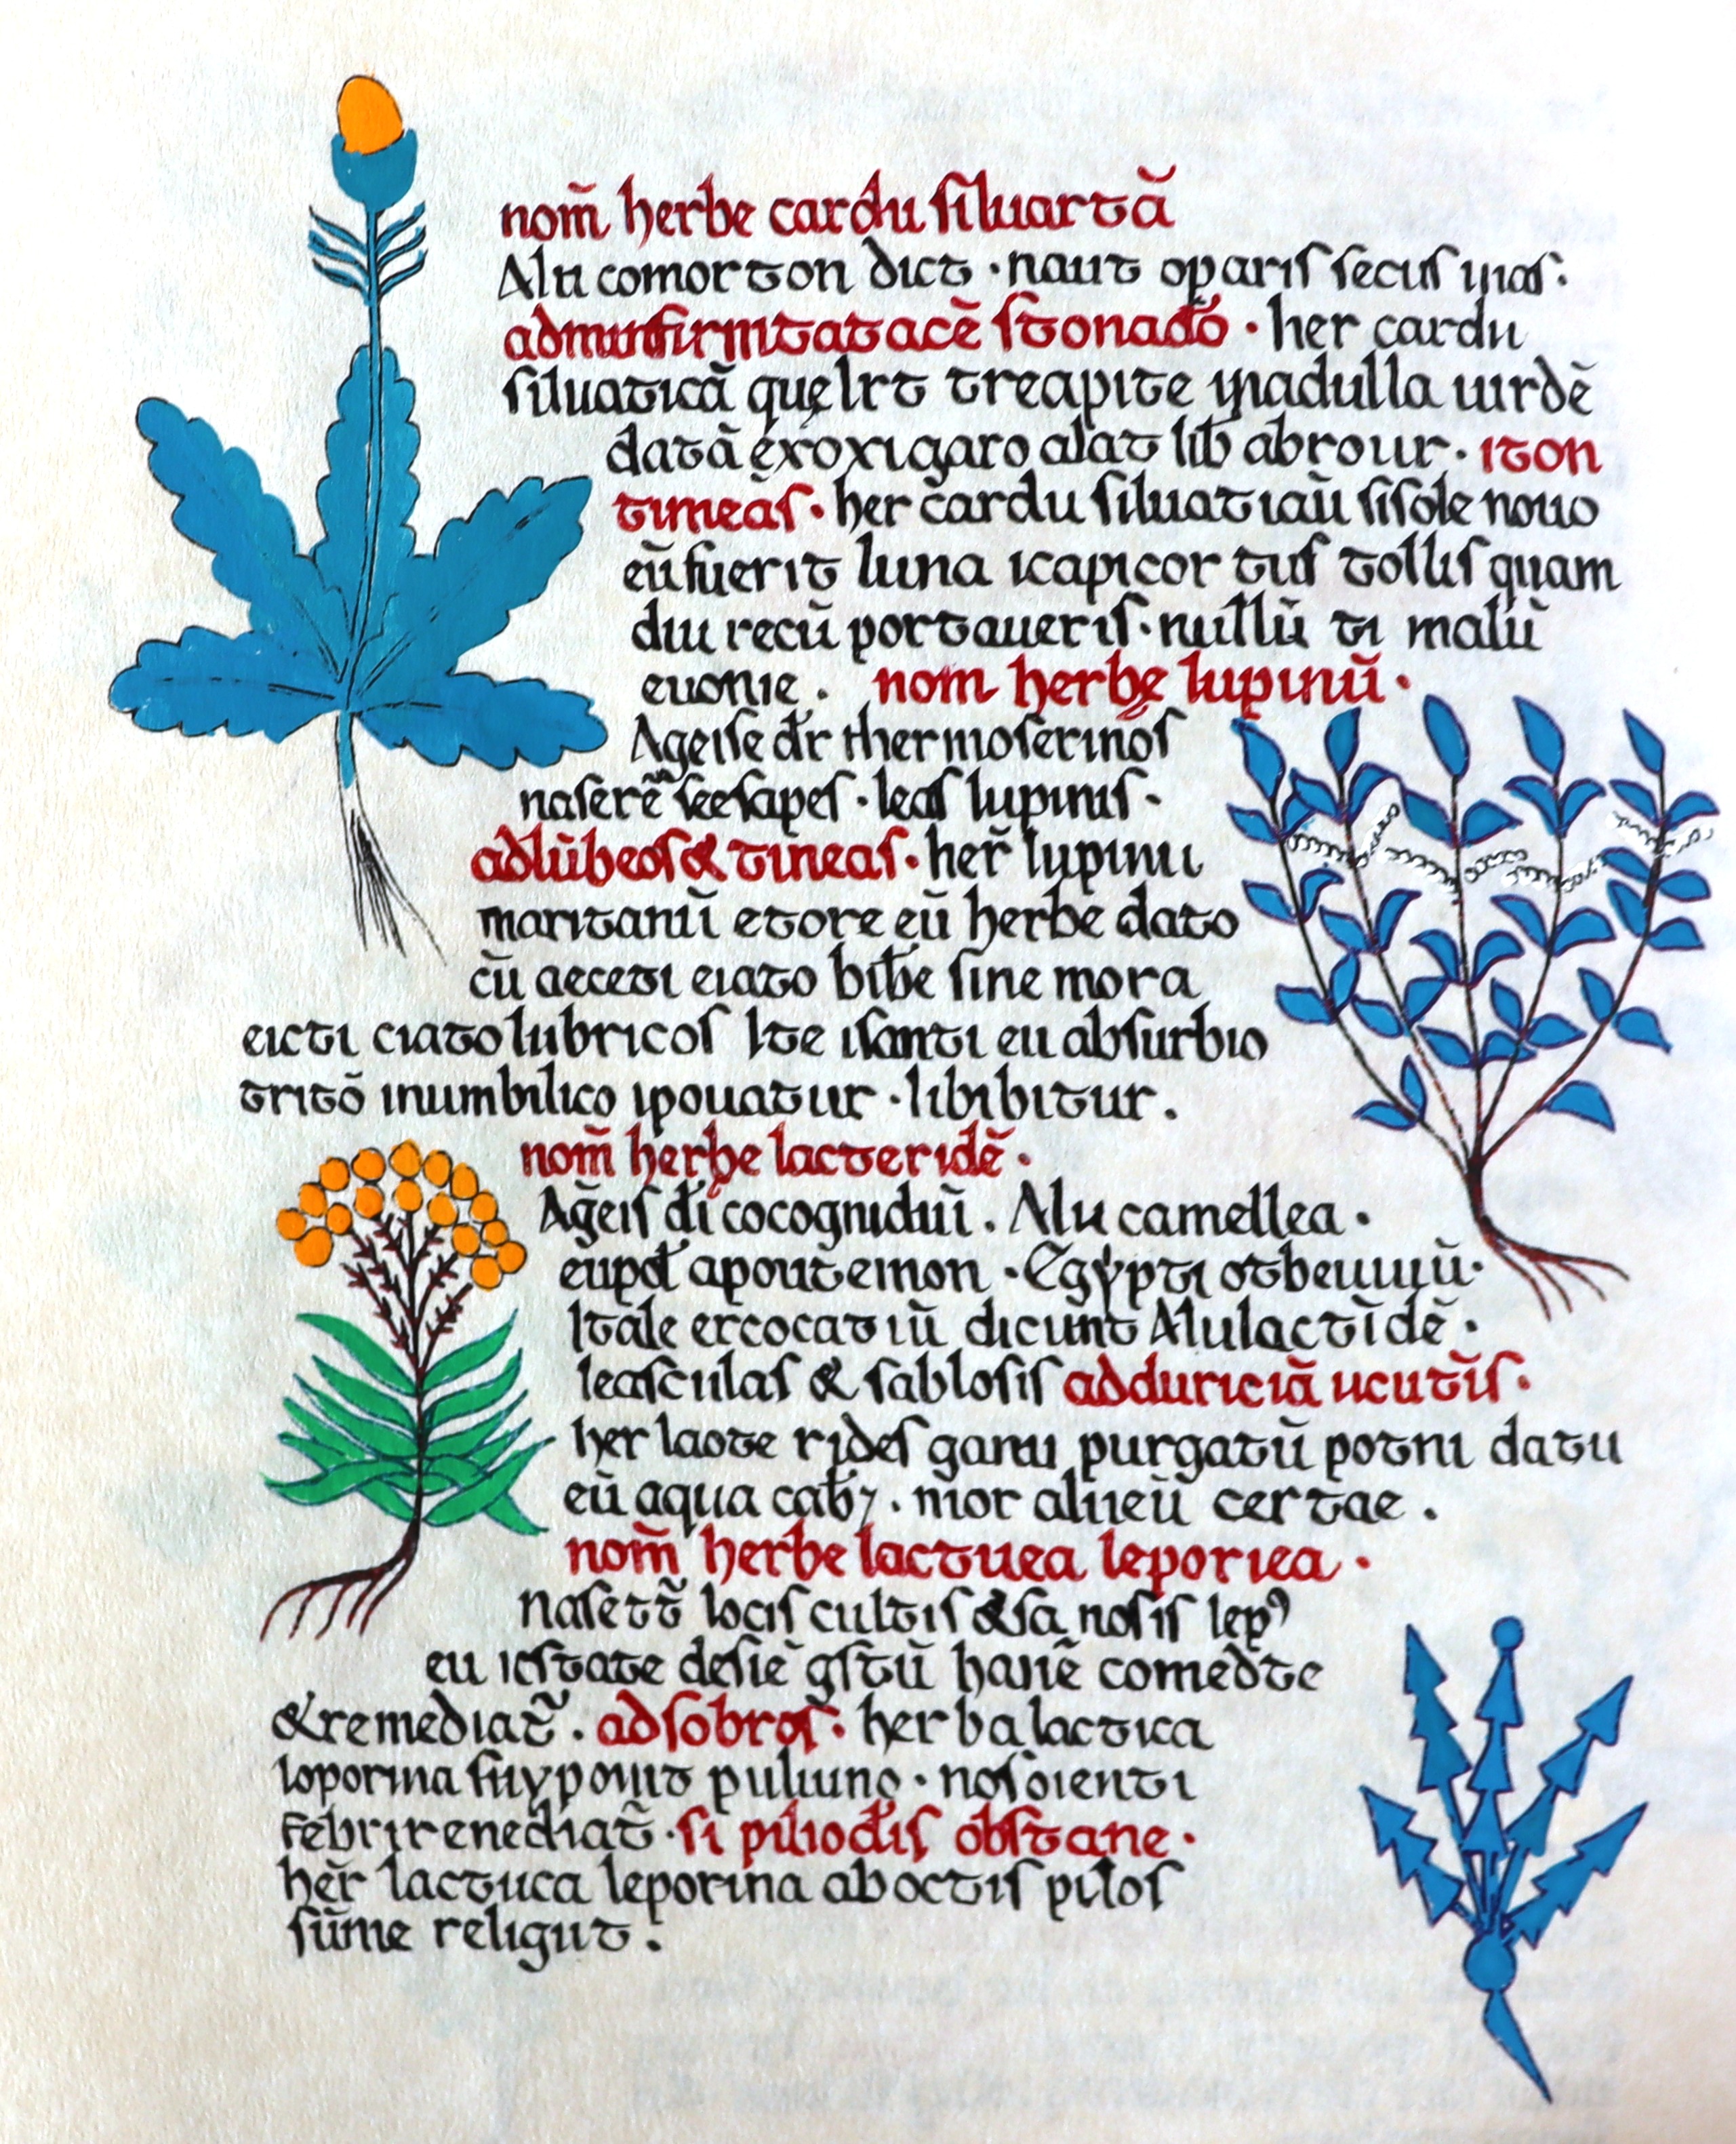 nom̄ herbe cardu siluartā
Alu comorton dict · naut oparis secus
her cardu
siluaticā treapite uirdē
datā éxoxigaro alat lib abrour · iton
timeās · her cardu siluatiaū sisole nouo
eū fuerit luna icapicor tus tollis quam
diu recū portaueris · nullū ti malū
euonie . nom herbe lupinū ·
Ageise dr̄ thermoserinos
naserē · leas lupinis ·
adlūbeos & tineas · her̄ lupinu
maritanū etore eū herbe dato
cū aeceti eiato bibe sine mora
eicti ciato lubricos lte isanti eu absurbio
tritō inumbilico ipouatur · libibitur .
nom̄ herbe lacteridē ·
Aḡeis di cocognidiū . Alu camellea ·
eupot apoutemon · Egypti
Itale ercocatiū dicunt Alulactīdē ·
leasculas & sablosis adduriciā ucutīs ·
her laote rides ganu purgatū potni datu
eū aqua cab7 . mor alueū certae .
nom̄ herbe lactuea leporiea ·
nasett̄ locis cultis & sa nosis lepꝰ
eu icstate desiē gstū haniē comedte
& remediat̄ . adsobros · herba lactica
loporina puliuno · nosoienti
febrirenediat̄ · si piliodis obstane ·
hēr lactuca leporina aboctis pilos
sūme religut .